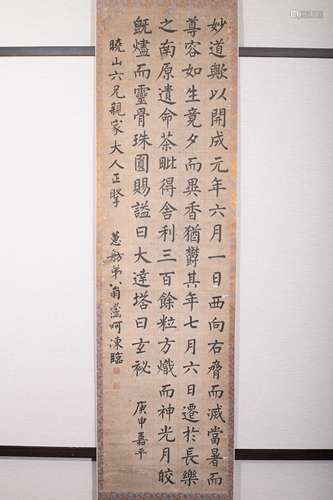 妙道歟以開成元年六月一日西向右脅而滅當暑而
尊容如生竟夕而異香猶欝其年七月六日遷於長樂
之南原遺命荼毗得舍利三百餘粒方熾而神光月皎
既燼而靈骨珠圓賜謚曰大達塔曰玄祕
庚申嘉平
曉山六兄親家大人正擘
蕙舫弟翁 呵凍臨